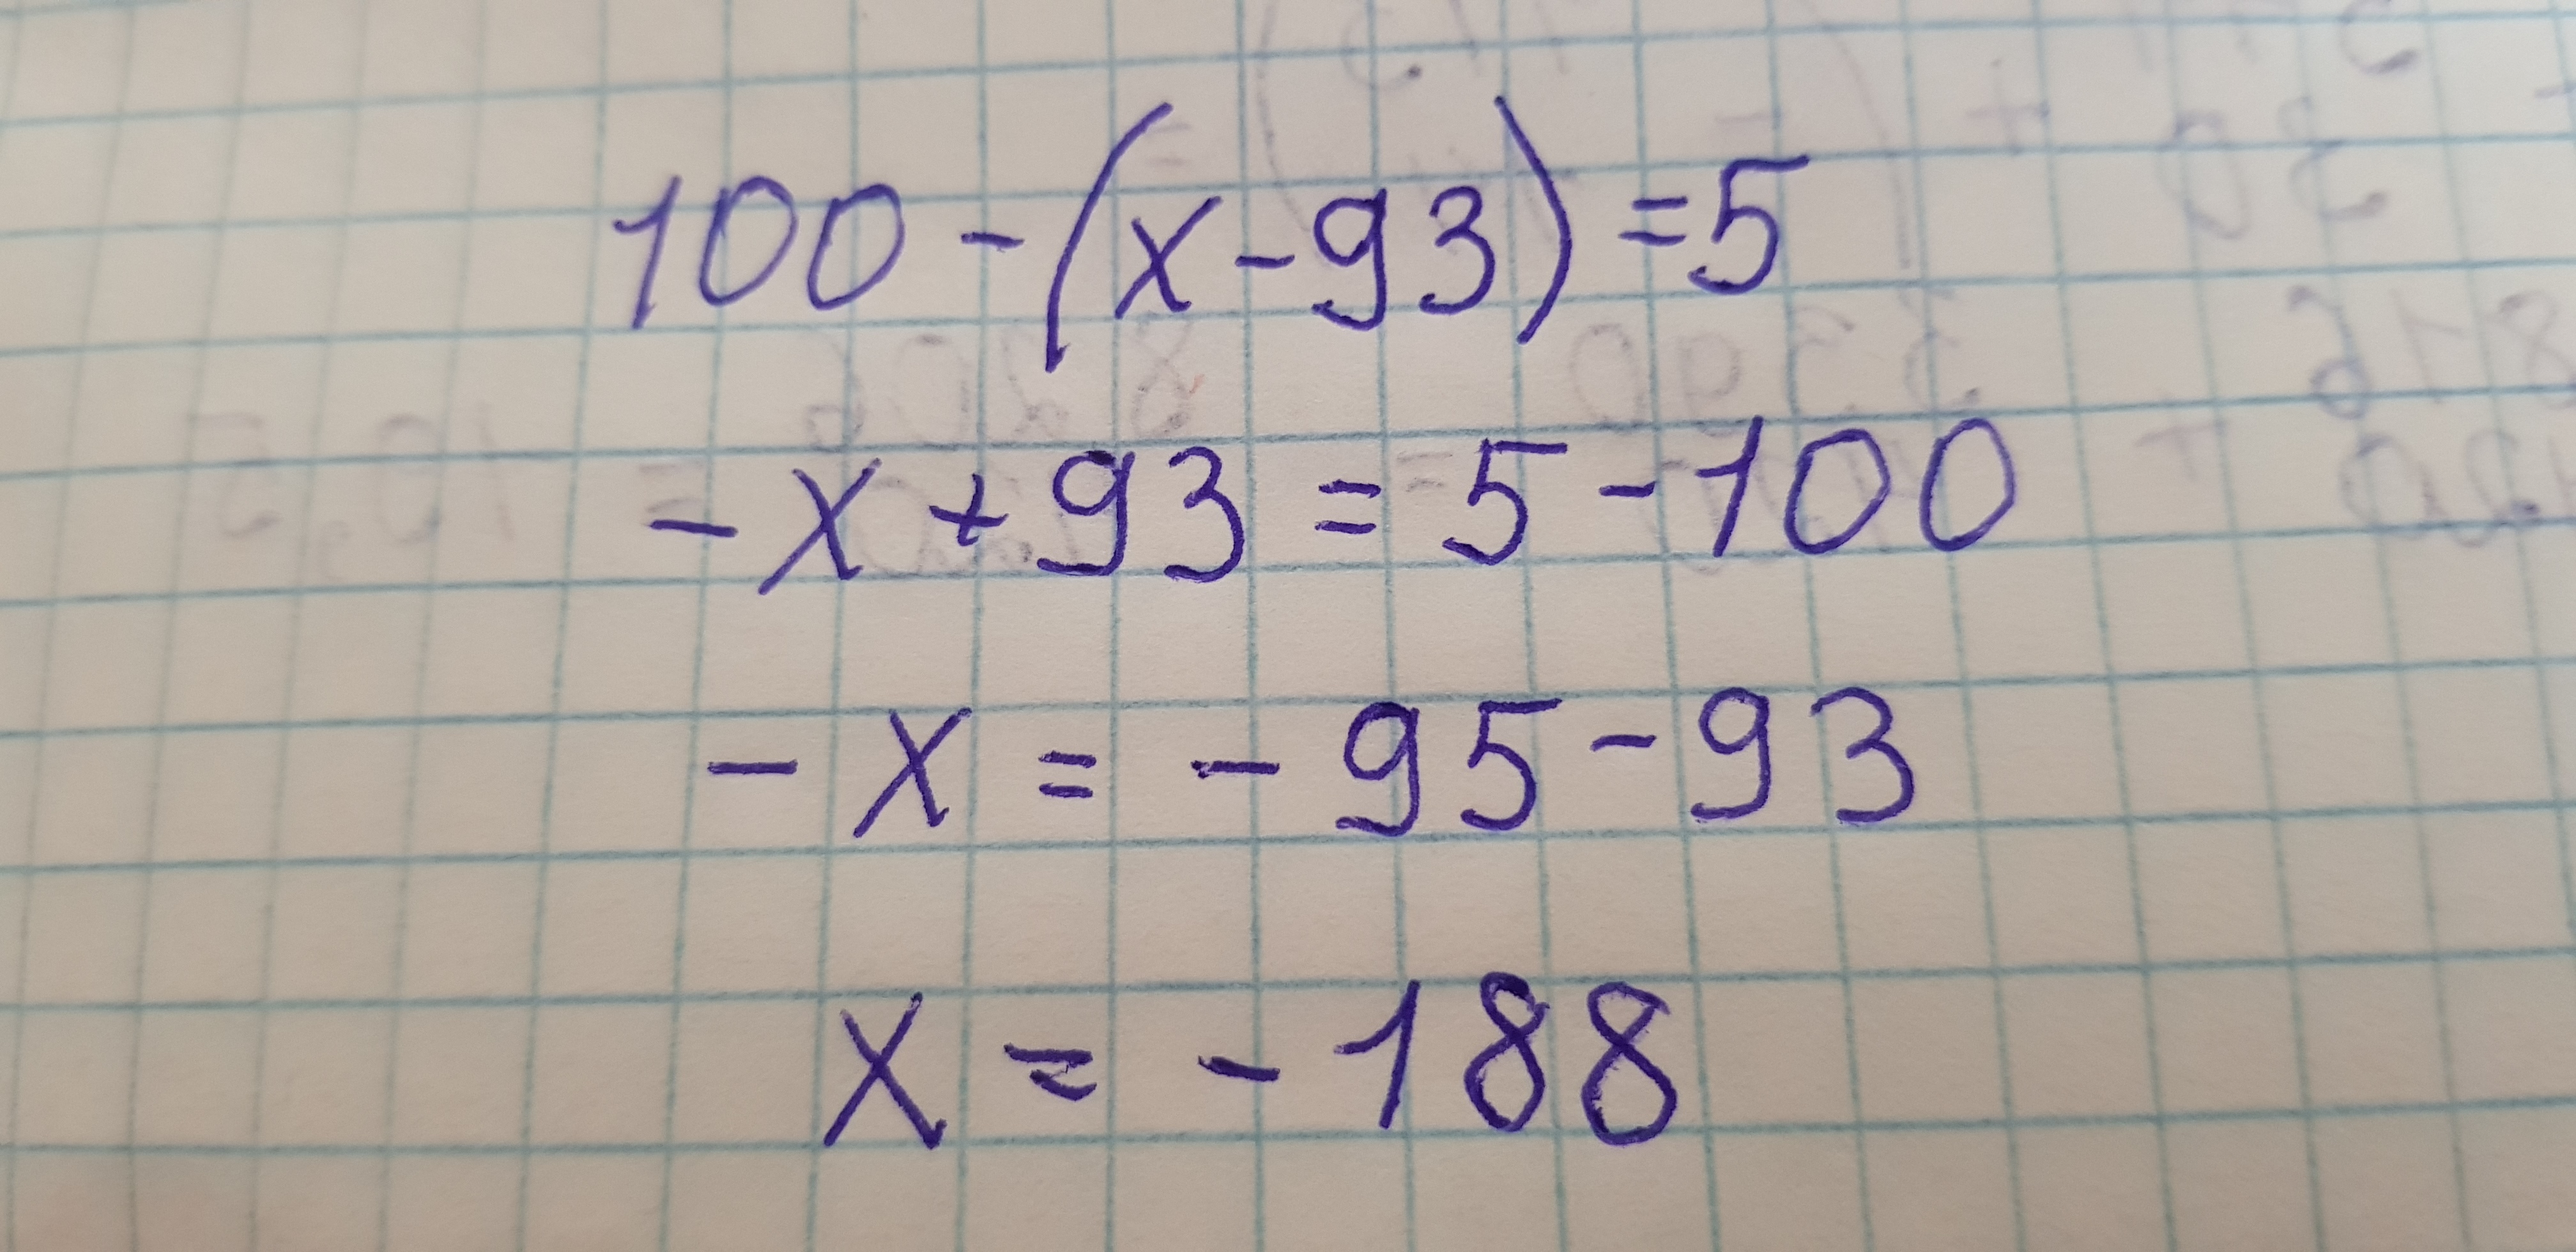 100 - (x - 93) = 5
- x + 93 = 5 - 100
- x = - 95 - 93
x = - 188